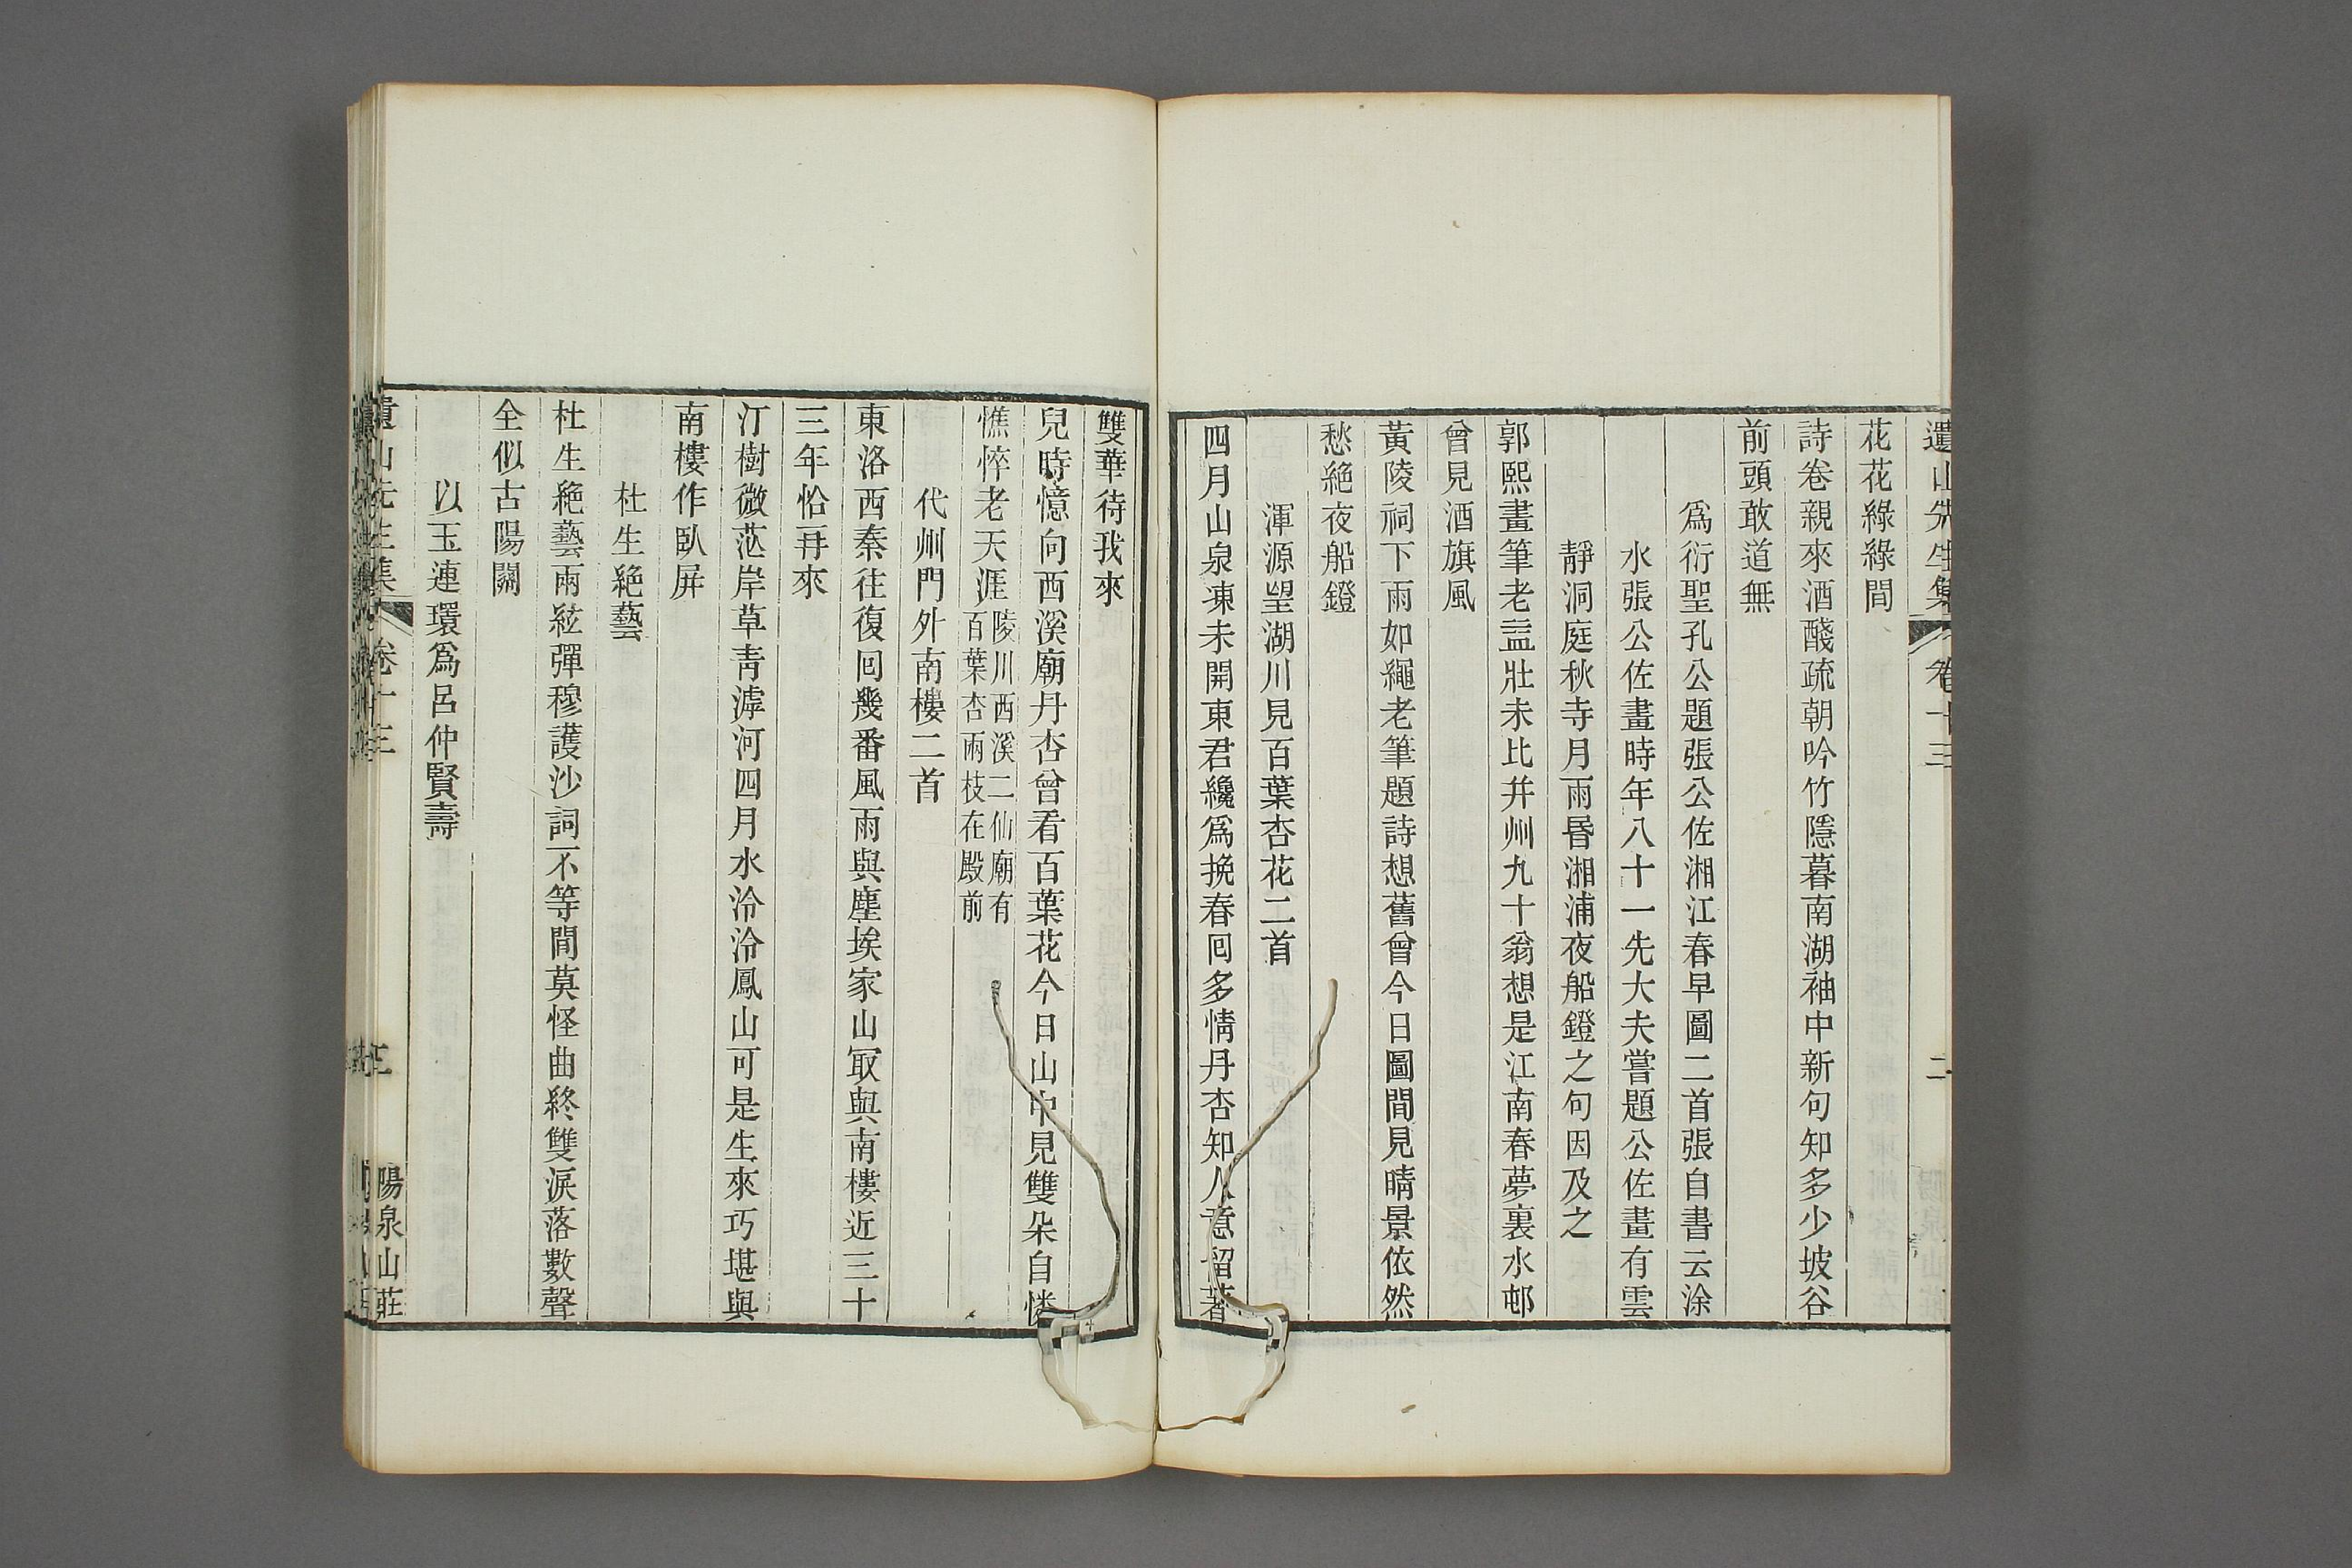 遺山先生集 卷十三 二
花花綠綠間
詩卷親來酒醆疏朝吟竹隱暮南湖袖中新句知多少坡谷
前頭敢道無
爲衍聖孔公題張公佐湘江春早圖二首張自書云涂
水張公佐畫時年八十一先大夫嘗題公佐畫有雲
靜洞庭秋寺月雨昬湘浦夜船鐙之句因及之
郭熙畫筆老盆壯未比幷州九十翁想是江南春夢裏水邨
曾見酒旗風
黃陵祠下雨如繩老筆題詩想舊曾今日圖間見晴景依然
愁絕夜船鐙
渾源望湖川見百葉杏花二首
四月山泉凍未開東君纔爲挽春回多情丹杏知人意留著
雙華待我來
兒時憶向西溪廟丹杏曾看百葉花今日山中見雙朵自憐
憔悴老天涯
陵川西溪二仙廟有
百葉杏兩枝在殿前
代州門外南樓二首
東洛西秦往復回幾番風雨與塵埃家山冣與南樓近三十
三年恰再來
汀樹微茫岸草靑滹河四月水泠泠鳳山可是生來巧堪與
南樓作臥屏
杜生絕藝
杜生絕藝兩絃彈穆護沙詞不等閒莫怪曲終雙淚落數聲
全似古陽關
以玉連環爲呂仲賢壽
遺山先生集 卷十三 三 陽泉山莊